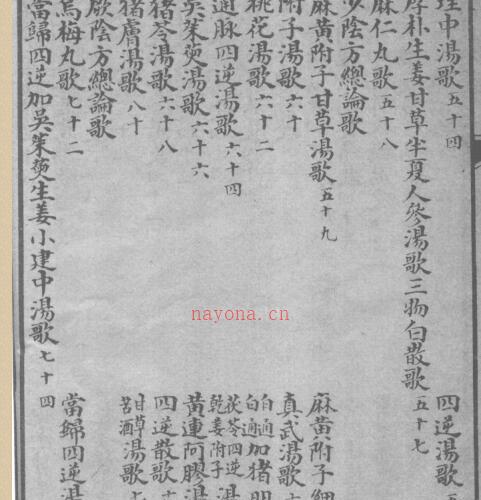 理中湯歌五十四 四逆湯
厚朴生姜甘草半夏人參湯歌三物白散歌五十七
麻仁丸歌五十八
少陰方總論歌
麻黃附子甘草湯歌五十九 麻黃附子細
附子湯歌六十 真武湯歌
桃花湯歌六十二 白通白通加猪胆
通脉四逆湯歌六十四 茯苓四逆湯乾姜附子
吳茱萸湯歌六十六 黃連阿膠湯
猪苓湯歌六十八 四逆散歌
猪膚湯歌八十 甘草苦酒湯歌七
厥陰方總論歌
烏梅丸歌七十二 當歸四逆湯
當歸四逆加吳茱萸生姜小建中湯歌七十四
nayona.cn